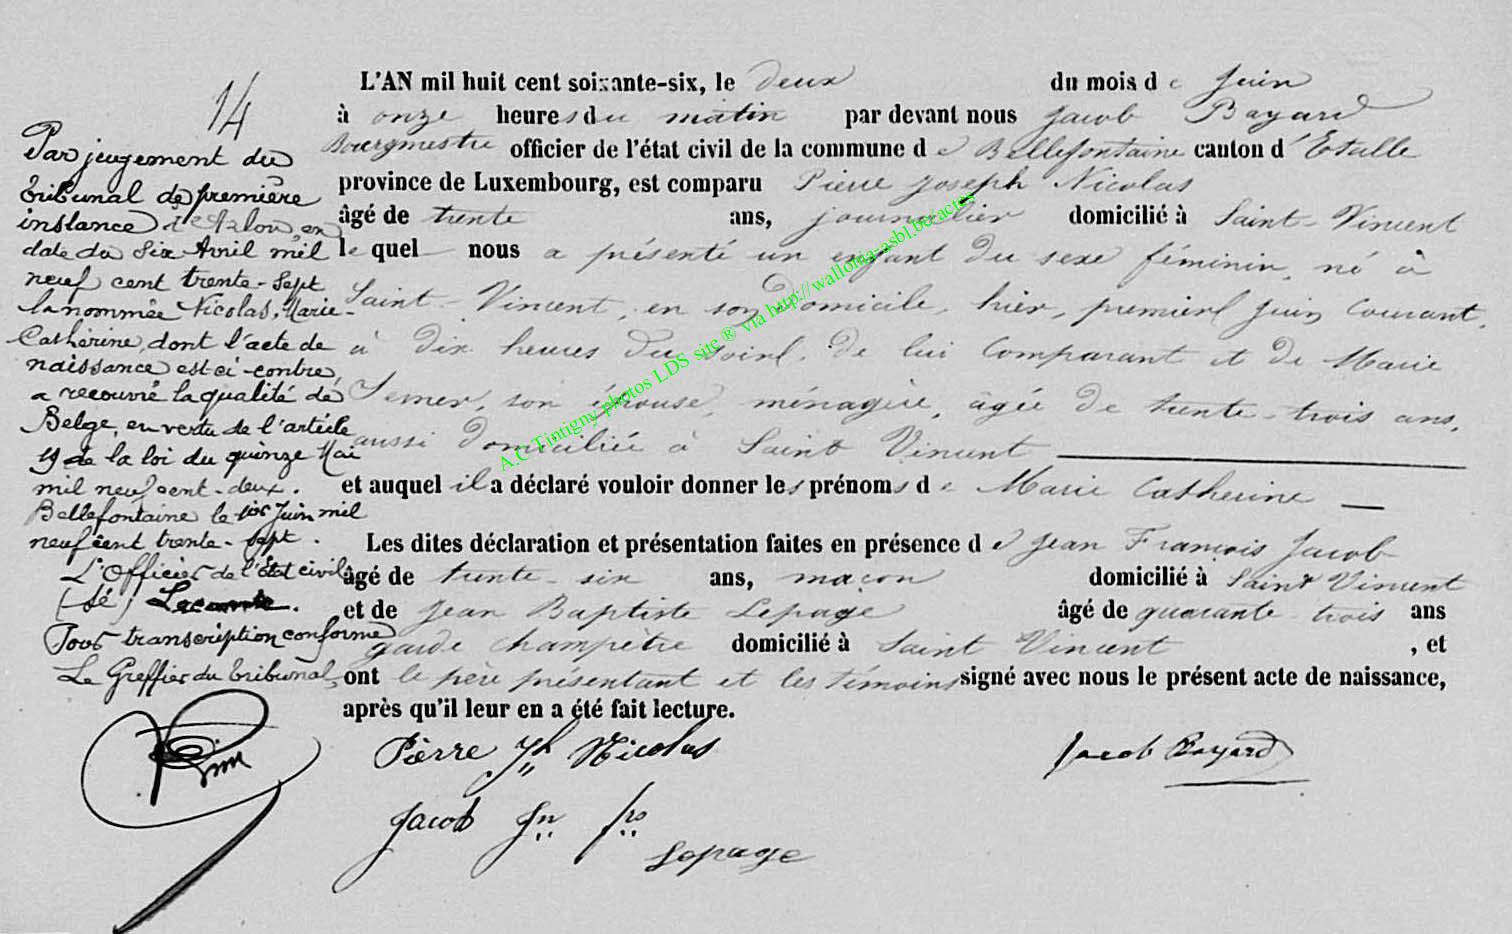 14
Par jeugement du
tribunal de première
instance d'Arlon en
date du six Avril mil
neuf cent trente-sept
la nommée Nicolas, Marie-
Catherine, dont l'acte de
naissance est ci-contre,
a recouvré la qualité de
Belge, en vertu de l'article
19 de la loi du quinze Mai
mil neuf cent-deux.
Bellefontaine le 1er Juin mil
neuf cent trente-sept.
L'Officier de l'état civil,
(sé) Lecomte.
Pour transcription conforme
Le Greffier du tribunal,
L'AN mil huit cent soixante-six, le deux du mois de Juin
à onze heures du matin par devant nous Jacob Bayard
Bourgmestre officier de l'état civil de la commune de Bellefontaine canton d'Etalle
province de Luxembourg, est comparu Pierre Joseph Nicolas
âgé de trente ans, journalier domicilié à Saint-Vincent
lequel nous a présenté un enfant du sexe féminin, né à
Saint-Vincent, en son domicile, hier, premier Juin courant,
à dix heures du soir, de lui comparant et de Marie
Semer, son épouse, ménagère, âgée de trente-trois ans,
aussi domiciliée à Saint Vincent
et auquel il a déclaré vouloir donner les prénoms de Marie Catherine
Les dites déclaration et présentation faites en présence de Jean François Jacob
âgé de trente-six ans, maçon domicilié à Saint Vincent
et de Jean Baptiste Lepage âgé de quarante-trois ans
garde champêtre domicilié à Saint Vincent, et
ont le père présentant et les témoins signé avec nous le présent acte de naissance,
après qu'il leur en a été fait lecture.
Pièrre Jh Nicolas
Jacob Bayard
Jacob Jn frs
Lepage
A.C Tintigny photos LDS site ® via http://wallonia-asbl.be/actes